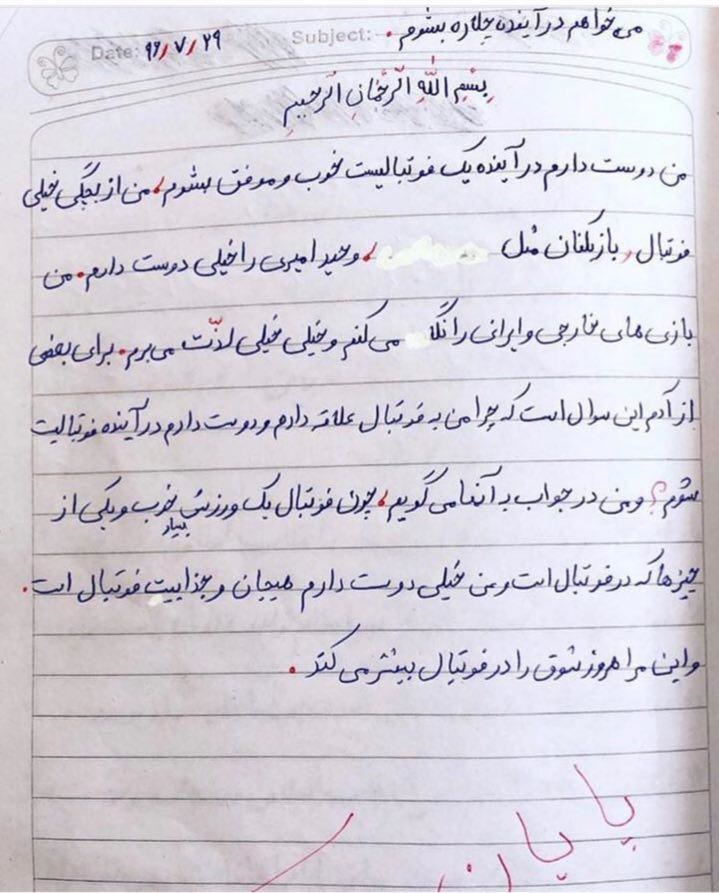 Subject: می خواهم در آینده چکاره بشوم.
Date: ۹۶/۷/۲۹
بِسْمِ اللَّهِ الرَّحْمَانِ الرَّحِیمِ
من دوست دارم در آینده یک فوتبالیست خوب و موفق بشوم، من از بچگی خیلی
فوتبال، بازیکنان مثل ، وحید امیری را خیلی دوست دارم. من
بازی های خارجی و ایرانی را نگاه می کنم و خیلی خیلی لذّت می برم. برای بعضی
از آدم این سوال است که چرا من به فوتبال علاقه دارم و دوست دارم در آینده فوتبالیت
بشوم؟ و من در جواب به آنها می گویم، چون فوتبال یک ورزش بسیار خوب و یکی از
چیزها که در فوتبال است و من خیلی دوست دارم هیجان و جذابیت فوتبال است.
و این مرا هروز شوق را در فوتبال بیشتر می کند.
پایان